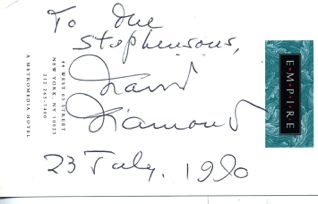 To the
Stephensons,
David
Diamond
23 July, 1990
44 WEST 63 STREET
NEW YORK, NY 10023
212 265-7400
A METROMEDIA HOTEL
EMPIRE